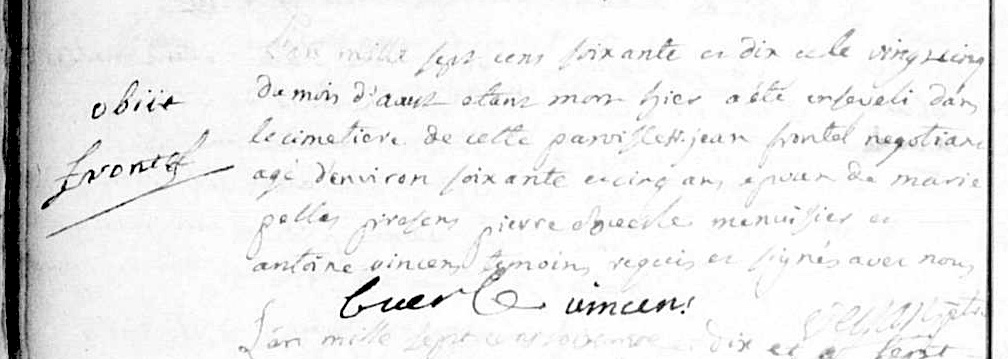 obiit
frontil
L'an mille sept cens soixante et dix et le vingt cinq
du mois d'aout etant mort hier a été enseveli dans
le cimetiere de cette paroisse Sr. jean frontel negotiant
agé d'environ soixante et cinq ans epoux de marie
pelles presens pierre menuisier et
antoine vincens temoins requis et signés avec nous
buerle vincens
L'an mille sept cens soixante et dix et